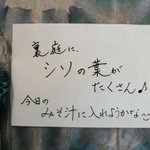 裏庭に、
シソの葉が
たくさん♪
今日の
みそ汁に入れようかな〜